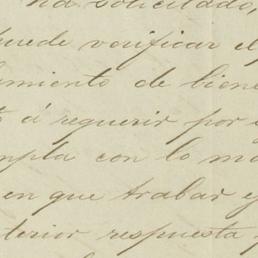 ha solicitado,
puede verificar el p
amiento de biene
á requerir por
mpla con lo ma
en que trabar e
terior respuesta